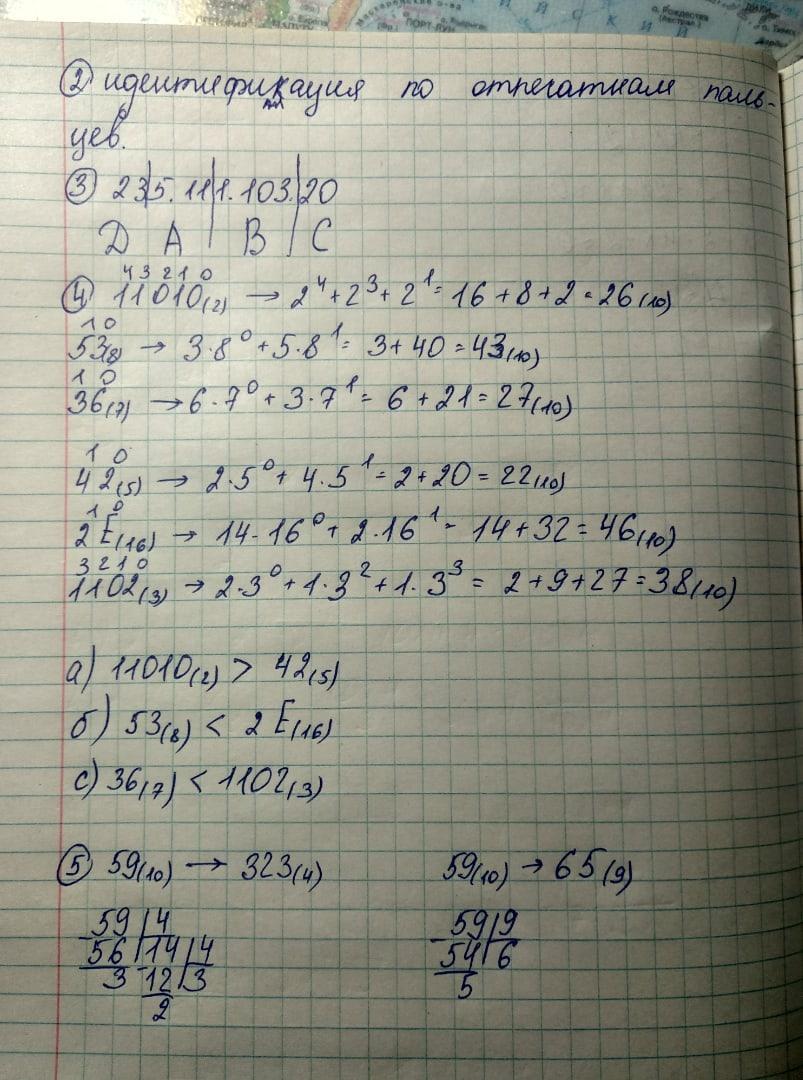 ② идентификация по отпечаткам паль-
цев.
③ 23|5.11|1.103.|20
D A | B | C
4 3 2 1 0
④ 11010(2) → 2⁴+2³+2¹=16+8+2=26(10)
1 0
53(8) → 3·8⁰+5·8¹= 3+40=43(10)
1 0
36(7) → 6·7⁰+3·7¹= 6+21=27(10)
1 0
42(5) → 2·5⁰+4·5¹=2+20=22(10)
1 0
2E(16) → 14·16⁰+2·16¹= 14+32=46(10)
3 2 1 0
1102(3) → 2·3⁰+1·3²+1·3³= 2+9+27=38(10)
а) 11010(2) > 42(5)
б) 53(8) < 2E(16)
с) 36(7) < 1102(3)
⑤ 59(10) → 323(4) 59(10) → 65(9)
59|4 59|9
56|14|4 54|6
3 12|3 5
2